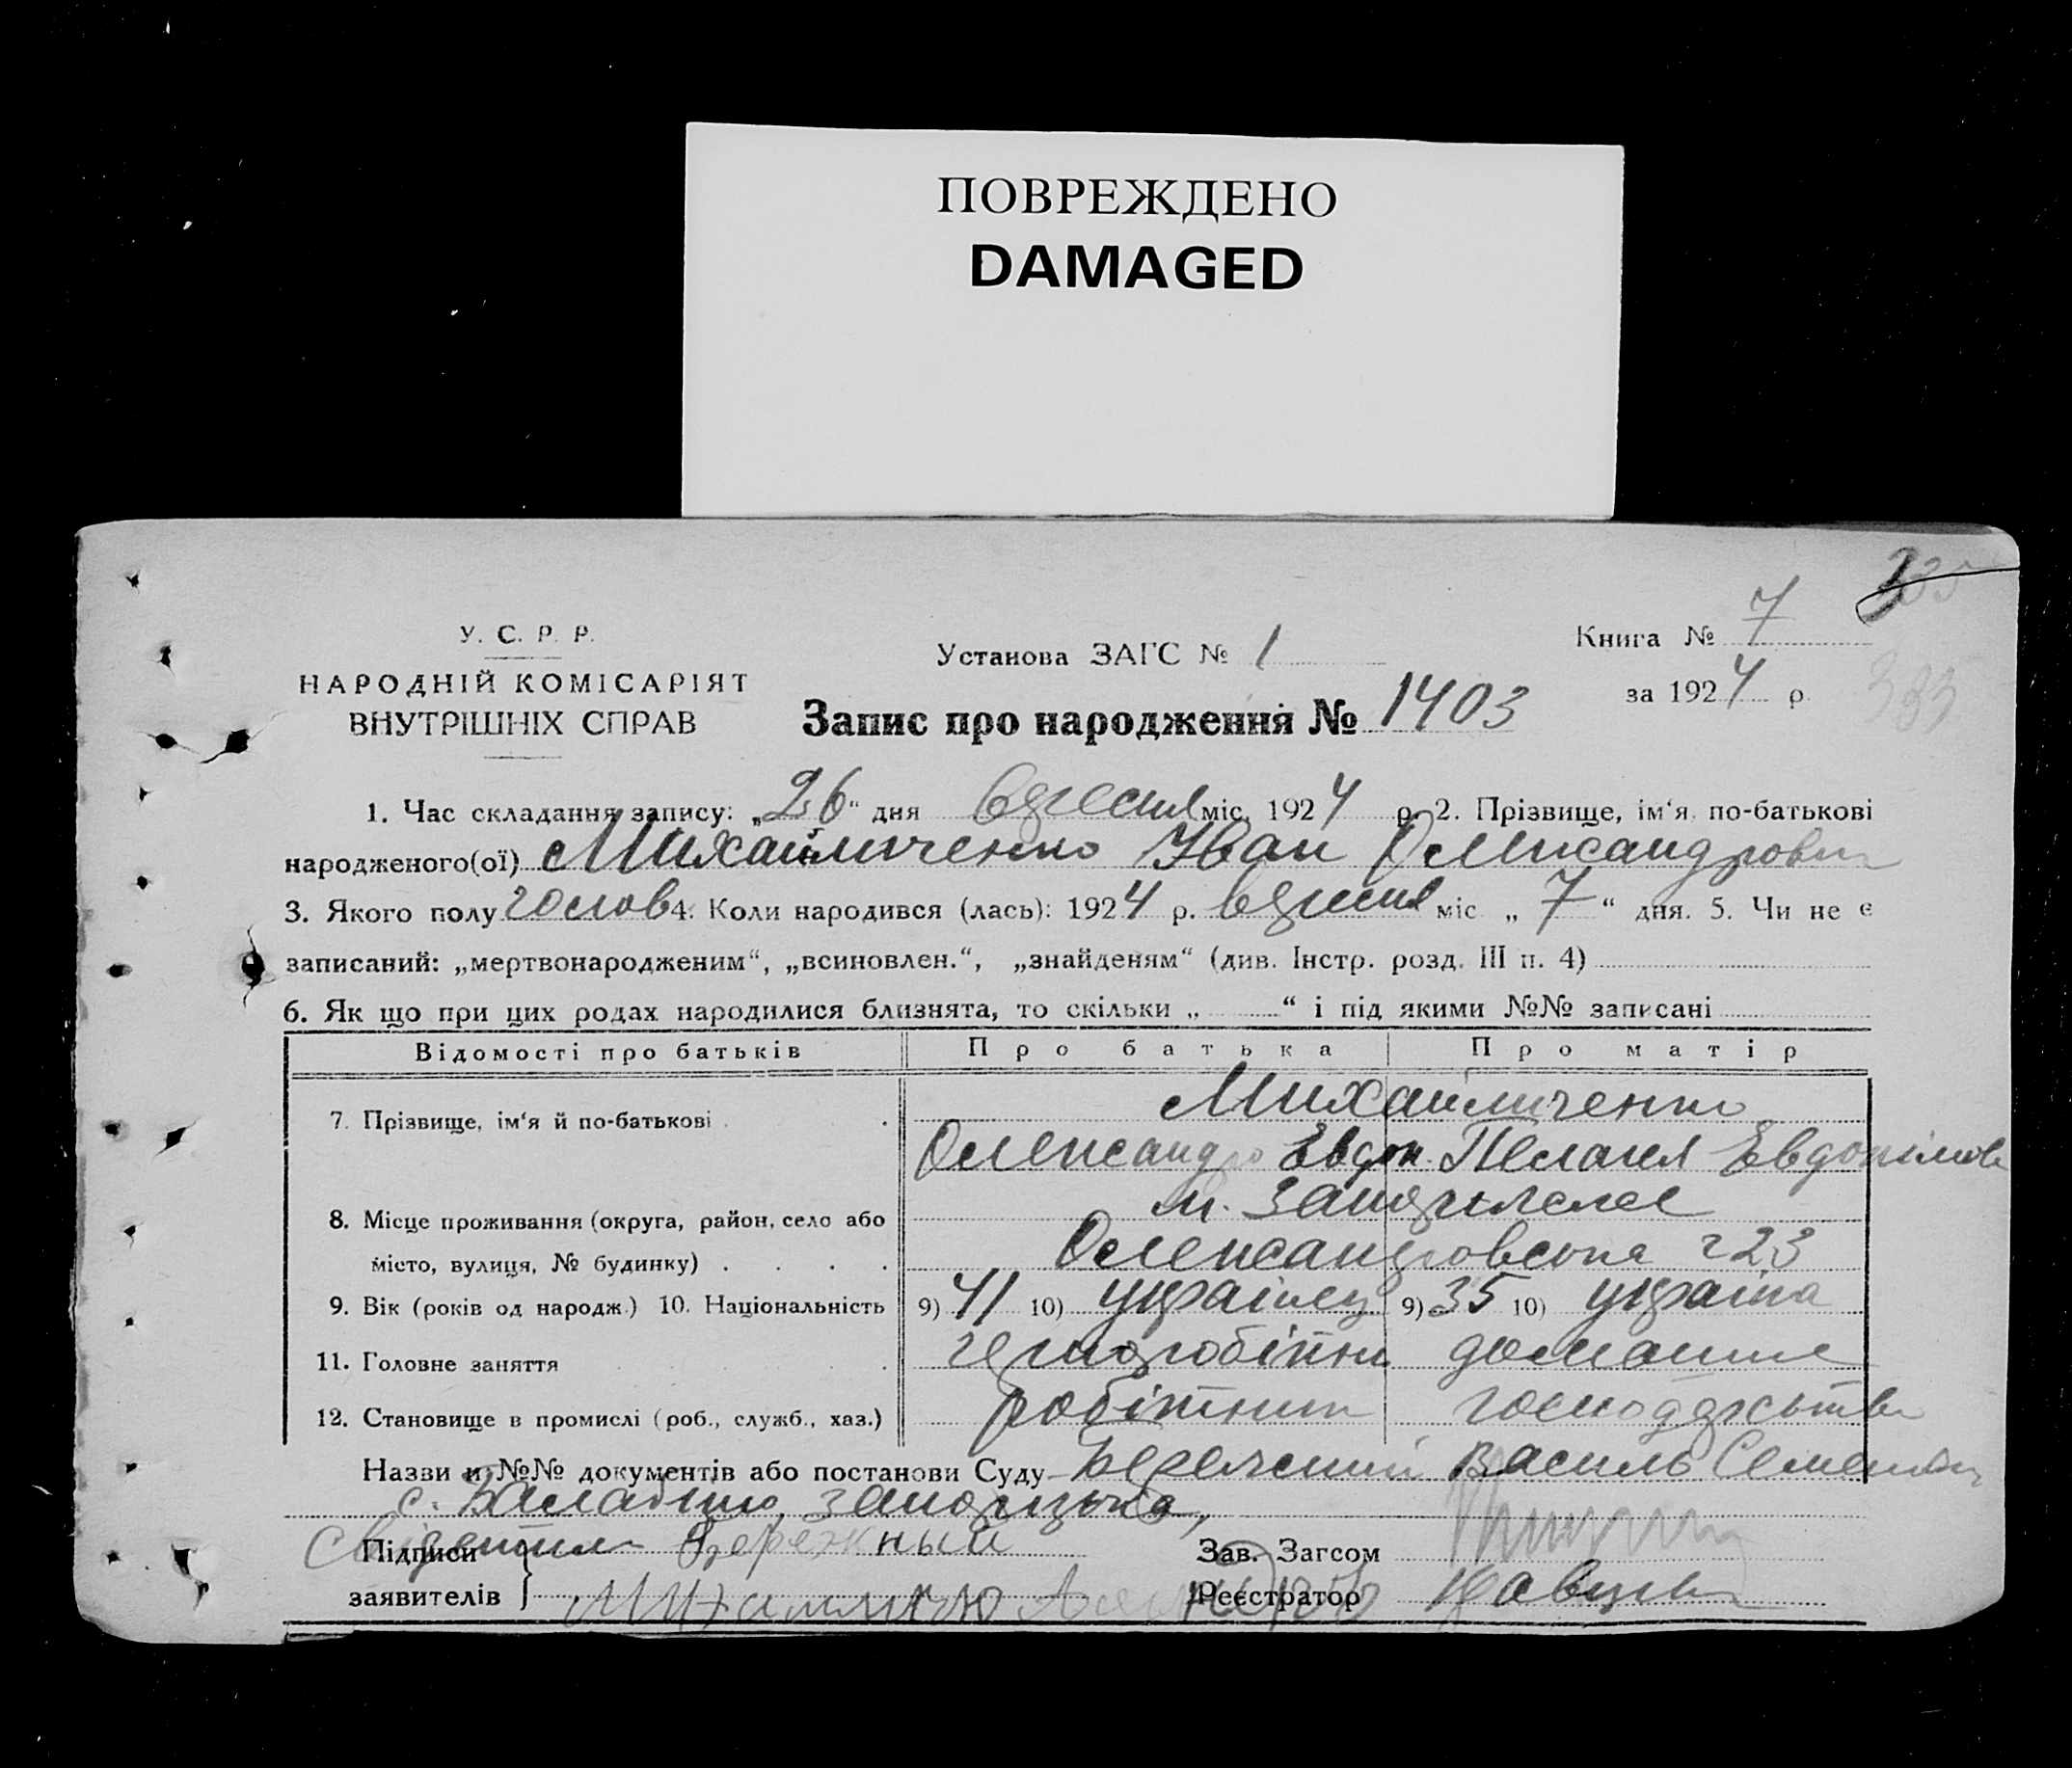 ПОВРЕЖДЕНО
DAMAGED
У. С. Р. Р.
НАРОДНІЙ КОМІСАРІЯТ
ВНУТРІШНІХ СПРАВ
Установа ЗАГС № 1
Книга № 7
за 1924 р.
Запис про народження № 1403
1. Час складання запису: „26“ дня вересня міс. 1924 р. 2. Прізвище, ім‘я, по-батькові
народженого(ої) Михайличенко Іван Олександрович
3. Якого полу чолов 4. Коли народився (лась): 1924 р. вересня міс „ 7 “ дня. 5. Чи не є
записаний: „мертвонародженим“, „всиновлен.“, „знайденям“ (див. Інстр. розд. III п. 4)
6. Як що при цих родах народилися близнята, то скільки „ “ і під якими №№ записані
Відомості про батьків Про батька Про матір
7. Прізвище, ім‘я й по-батькові Михайличенко
Олександр Евдок. Пелагея Евдокімов
8. Місце проживання (округа, район, село або м. Запоріжжє
місто, вулиця, № будинку) Олександровська 223
9. Вік (років од народж.) 10. Національність 9) 41 10) українец 9) 35 10) україна
11. Головне заняття чорноробітник домашнє
12. Становище в промислі (роб., служб., хаз.) робітник господарство
Назви и №№ документів або постанови Суду Василь Семенович
с. Балабино,
Підписи Бережный Зав. Загсом
заявителів Реєстратор